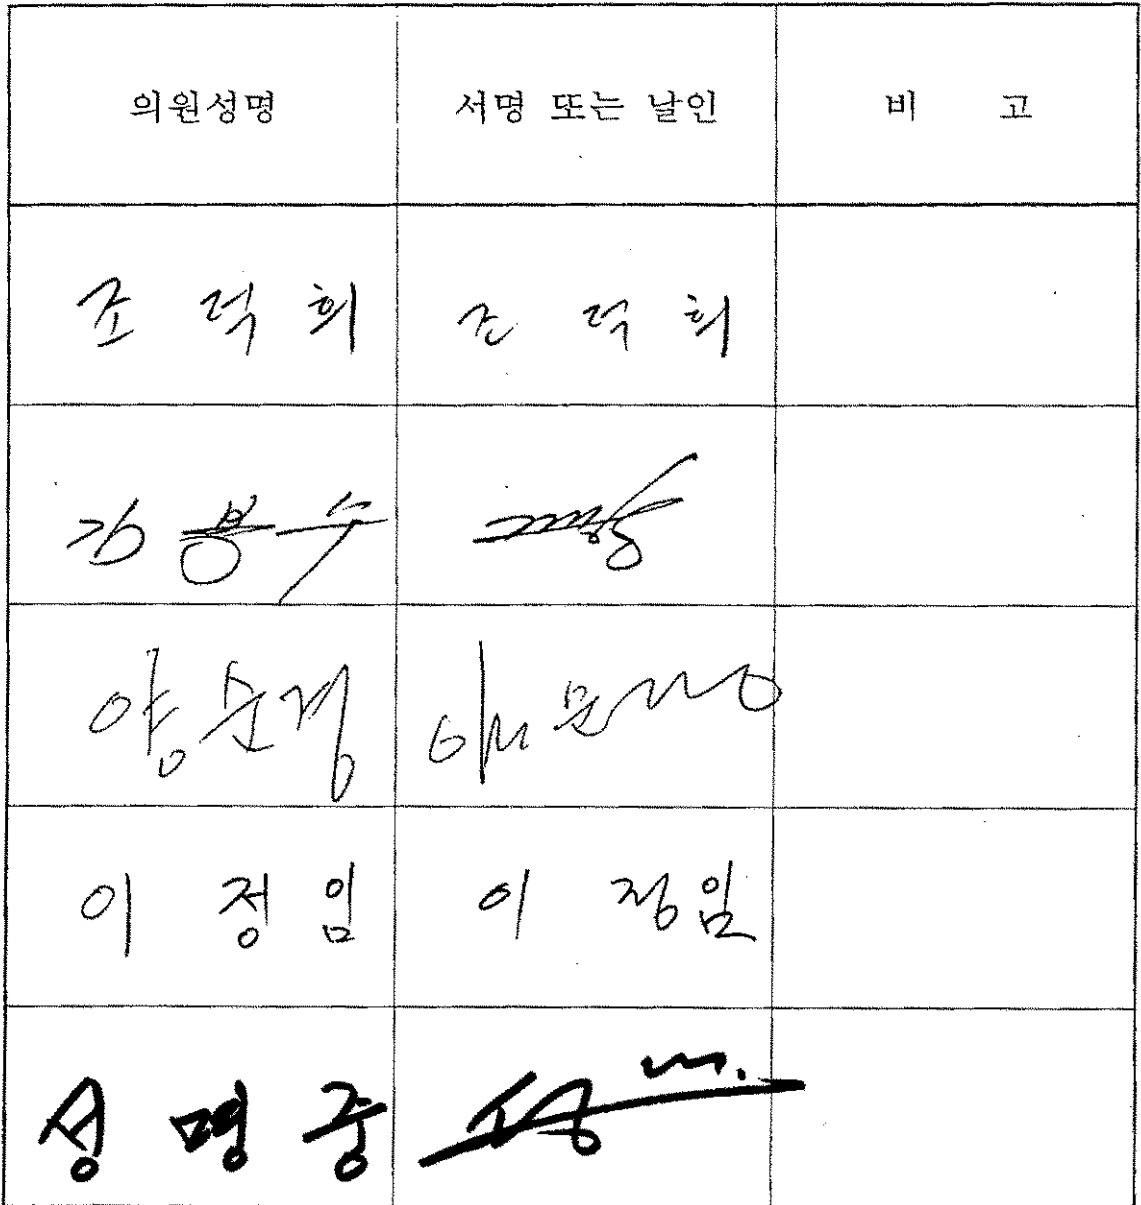 의원성명 서명 또는 날인 비 고
조 덕 희 조 덕 희
김 봉 수
양 순 경
이 정 임 이 정임
성 명 중